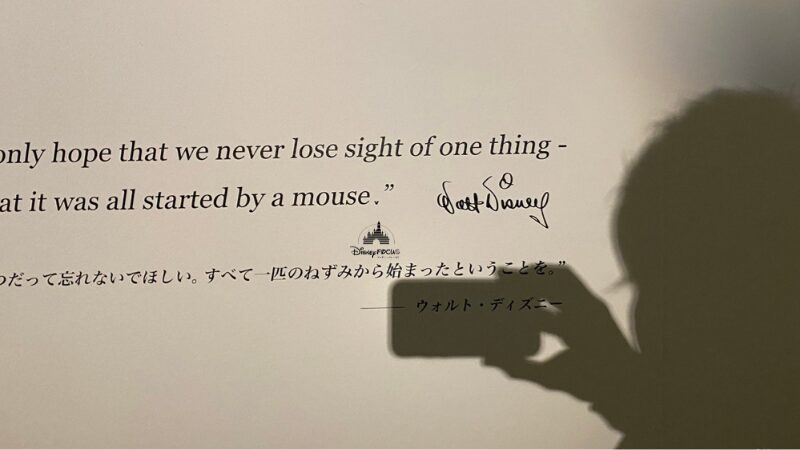 only hope that we never lose sight of one thing -
at it was all started by a mouse.”
Walt Disney
Disney FOCUS
つだって忘れないでほしい。すべて一匹のねずみから始まったということを。”
ウォルト・ディズニー